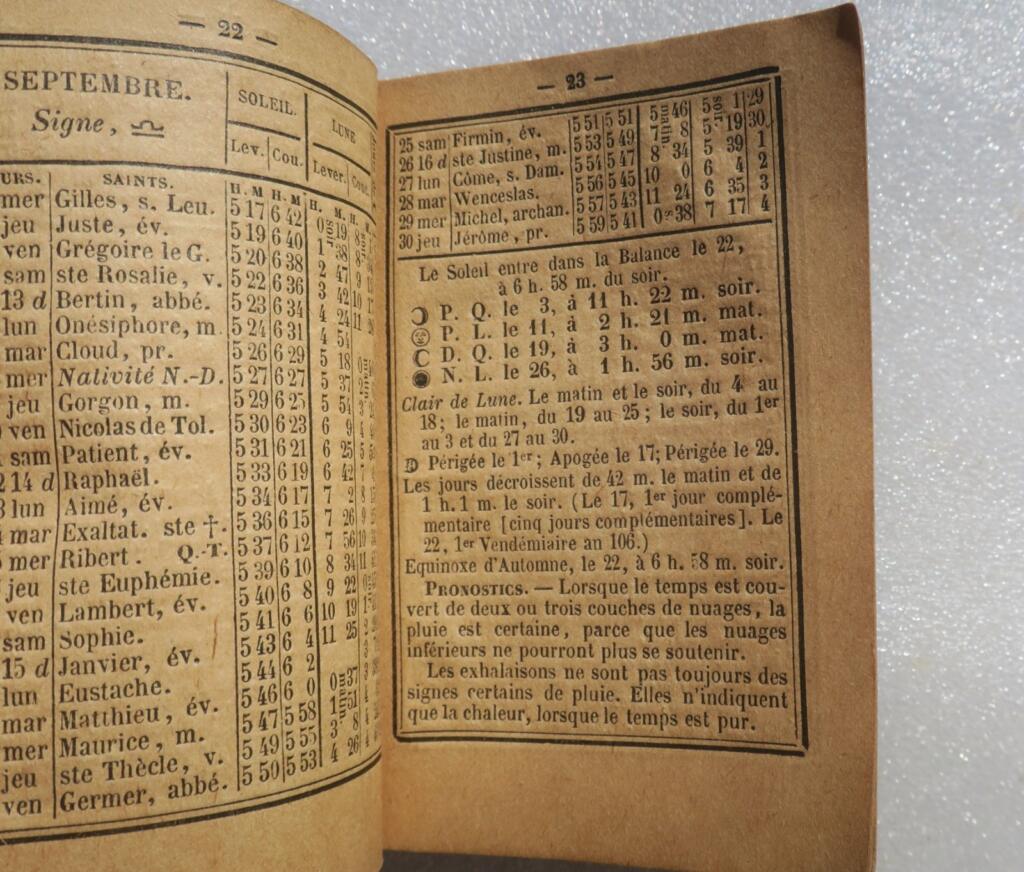 — 22 —
SEPTEMBRE.
Signe, ♎
SOLEIL.
LUNE
Lev. Cou.
Lever.
URS. SAINTS. H. M H. M H. M. H.
mer Gilles, s. Leu. 5 17 6 42 0
jeu Juste, év. 5 19 6 40 1 38
ven Grégoire le G. 5 20 6 38 2 47
sam ste Rosalie, v. 5 22 6 36 3 42
13 d Bertin, abbé. 5 23 6 34 4 24
lun Onésiphore, m. 5 24 6 31 4 54
mar Cloud, pr. 5 26 6 29 5 18
mer Nativité N.-D. 5 27 6 27 5 37
jeu Gorgon, m. 5 29 6 25 5 54
ven Nicolas de Tol. 5 30 6 23 6 9
sam Patient, év. 5 31 6 21 6 25
14 d Raphaël. 5 33 6 19 6 42
lun Aimé, év. 5 34 6 17 7 2
mar Exaltat. ste †. 5 36 6 15 7 26
mer Ribert. Q.-T. 5 37 6 12 7 56
jeu ste Euphémie. 5 39 6 10 8 34
ven Lambert, év. 5 40 6 8 9 22
sam Sophie. 5 41 6 6 10 19
15 d Janvier, év. 5 43 6 4 11 25
lun Eustache. 5 44 6 2
mar Matthieu, év. 5 46 6 0 0 37
mer Maurice, m. 5 47 5 58 1 51
jeu ste Thècle, v. 5 49 5 55 3 8
ven Germer, abbé. 5 50 5 53 4 26
— 23 —
25 sam Firmin, év. 5 51 5 51 5 46 5 1 29
26 16 d ste Justine, m. 5 53 5 49 7 8 5 19 30
27 lun Côme, s. Dam. 5 54 5 47 8 34 5 39 1
28 mar Wenceslas. 5 56 5 45 10 0 6 4 2
29 mer Michel, archan. 5 57 5 43 11 24 6 35 3
30 jeu Jérôme, pr. 5 59 5 41 0 s 38 7 17 4
matin.
soir
Le Soleil entre dans la Balance le 22,
à 6 h. 58 m. du soir.
☽ P. Q. le 3, à 11 h. 22 m. soir.
P. L. le 11, à 2 h. 21 m. mat.
☾ D. Q. le 19, à 3 h. 0 m. mat.
● N. L. le 26, à 1 h. 56 m. soir.
Clair de Lune. Le matin et le soir, du 4 au
18; le matin, du 19 au 25; le soir, du 1er
au 3 et du 27 au 30.
Périgée le 1er; Apogée le 17; Périgée le 29.
Les jours décroissent de 42 m. le matin et de
1 h. 1 m. le soir. (Le 17, 1er jour complé-
mentaire [cinq jours complémentaires]. Le
22, 1er Vendémiaire an 106.)
Equinoxe d'Automne, le 22, à 6 h. 58 m. soir.
PRONOSTICS. — Lorsque le temps est cou-
vert de deux ou trois couches de nuages, la
pluie est certaine, parce que les nuages
inférieurs ne pourront plus se soutenir.
Les exhalaisons ne sont pas toujours des
signes certains de pluie. Elles n'indiquent
que la chaleur, lorsque le temps est pur.